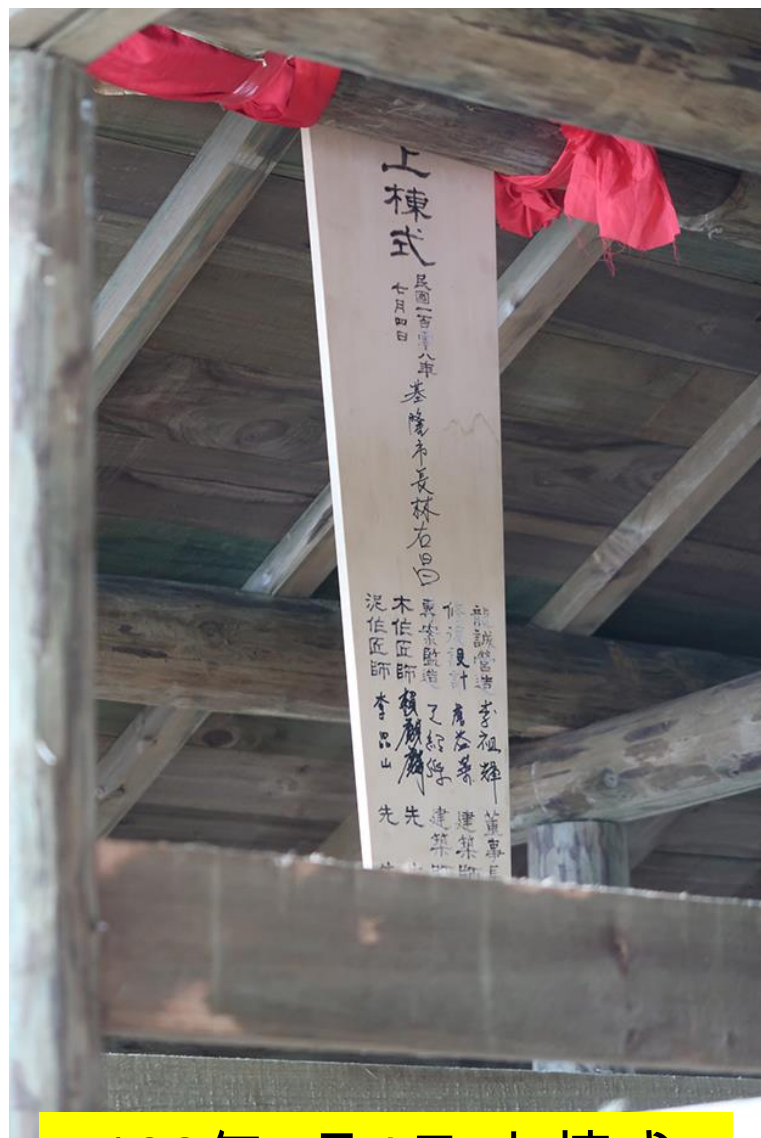 上棟式
民國一百零八年
七月四日
基隆市長林右昌
龍誠營造 李祖輝 董事長
修復設計 建築師
專案監造 建築師
木作匠師 賴麒麟 先
泥作匠師 李昆山 先